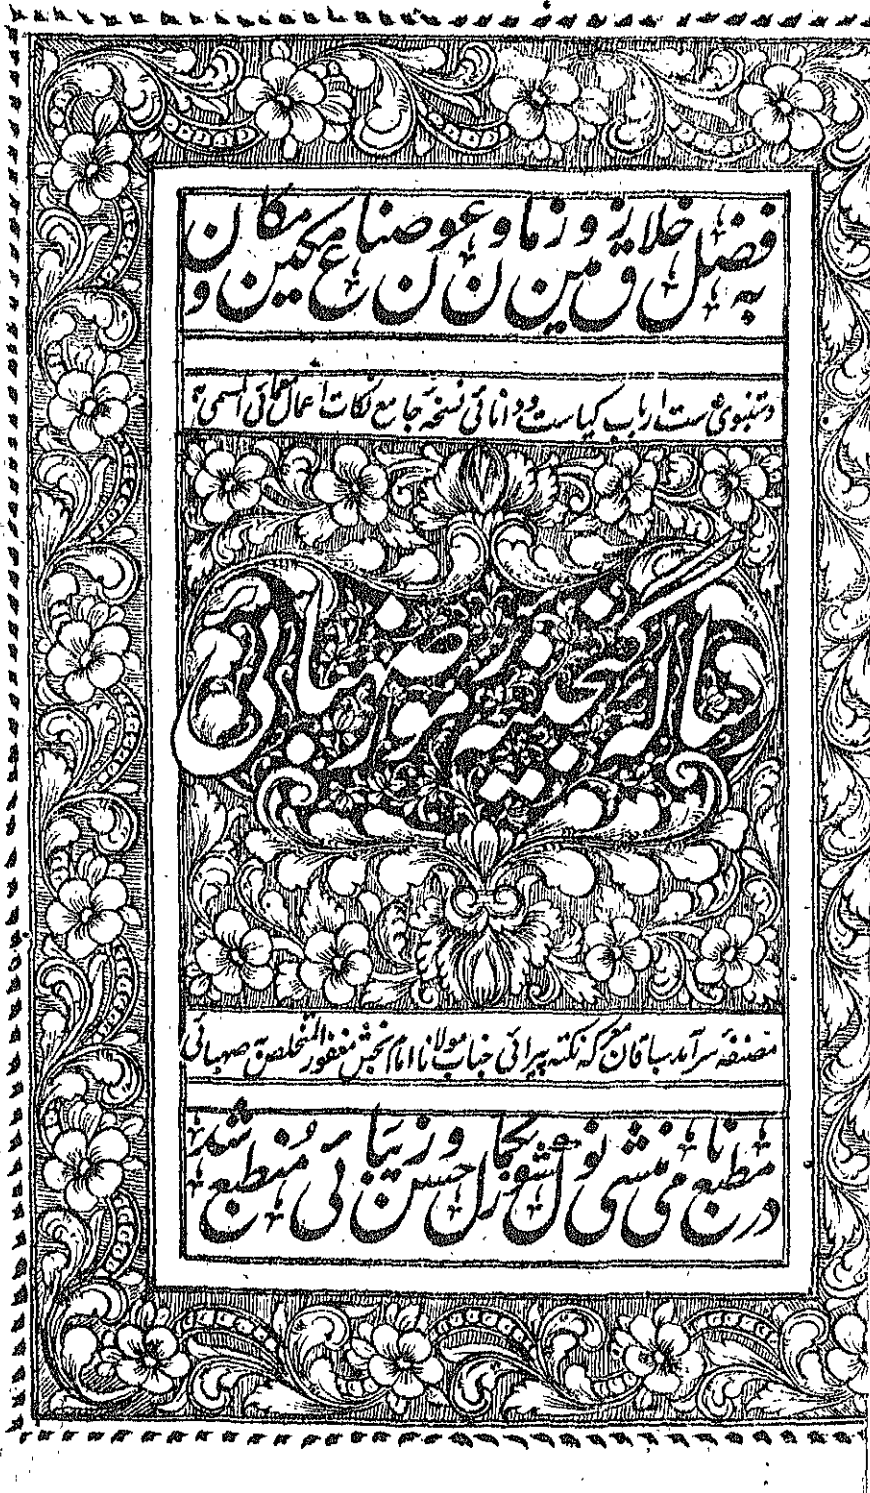 به فضل خلاق زمین و زمان و عون صناع مکین و مکان
دستنبوی دست ارباب کیاست و دانائی نسخهٔ جامع نکات اعمال معمائی المسمی به
رساله گنجینهٔ رموز صهبائی
مصنفهٔ سرآمد سباقان معرکه نکته پیرائی جناب مولانا امام بخش مغفور المتخلص به صهبائی
در مطبع نامی منشی نولکشور بجمال حسن و زیبائی منطبع شد